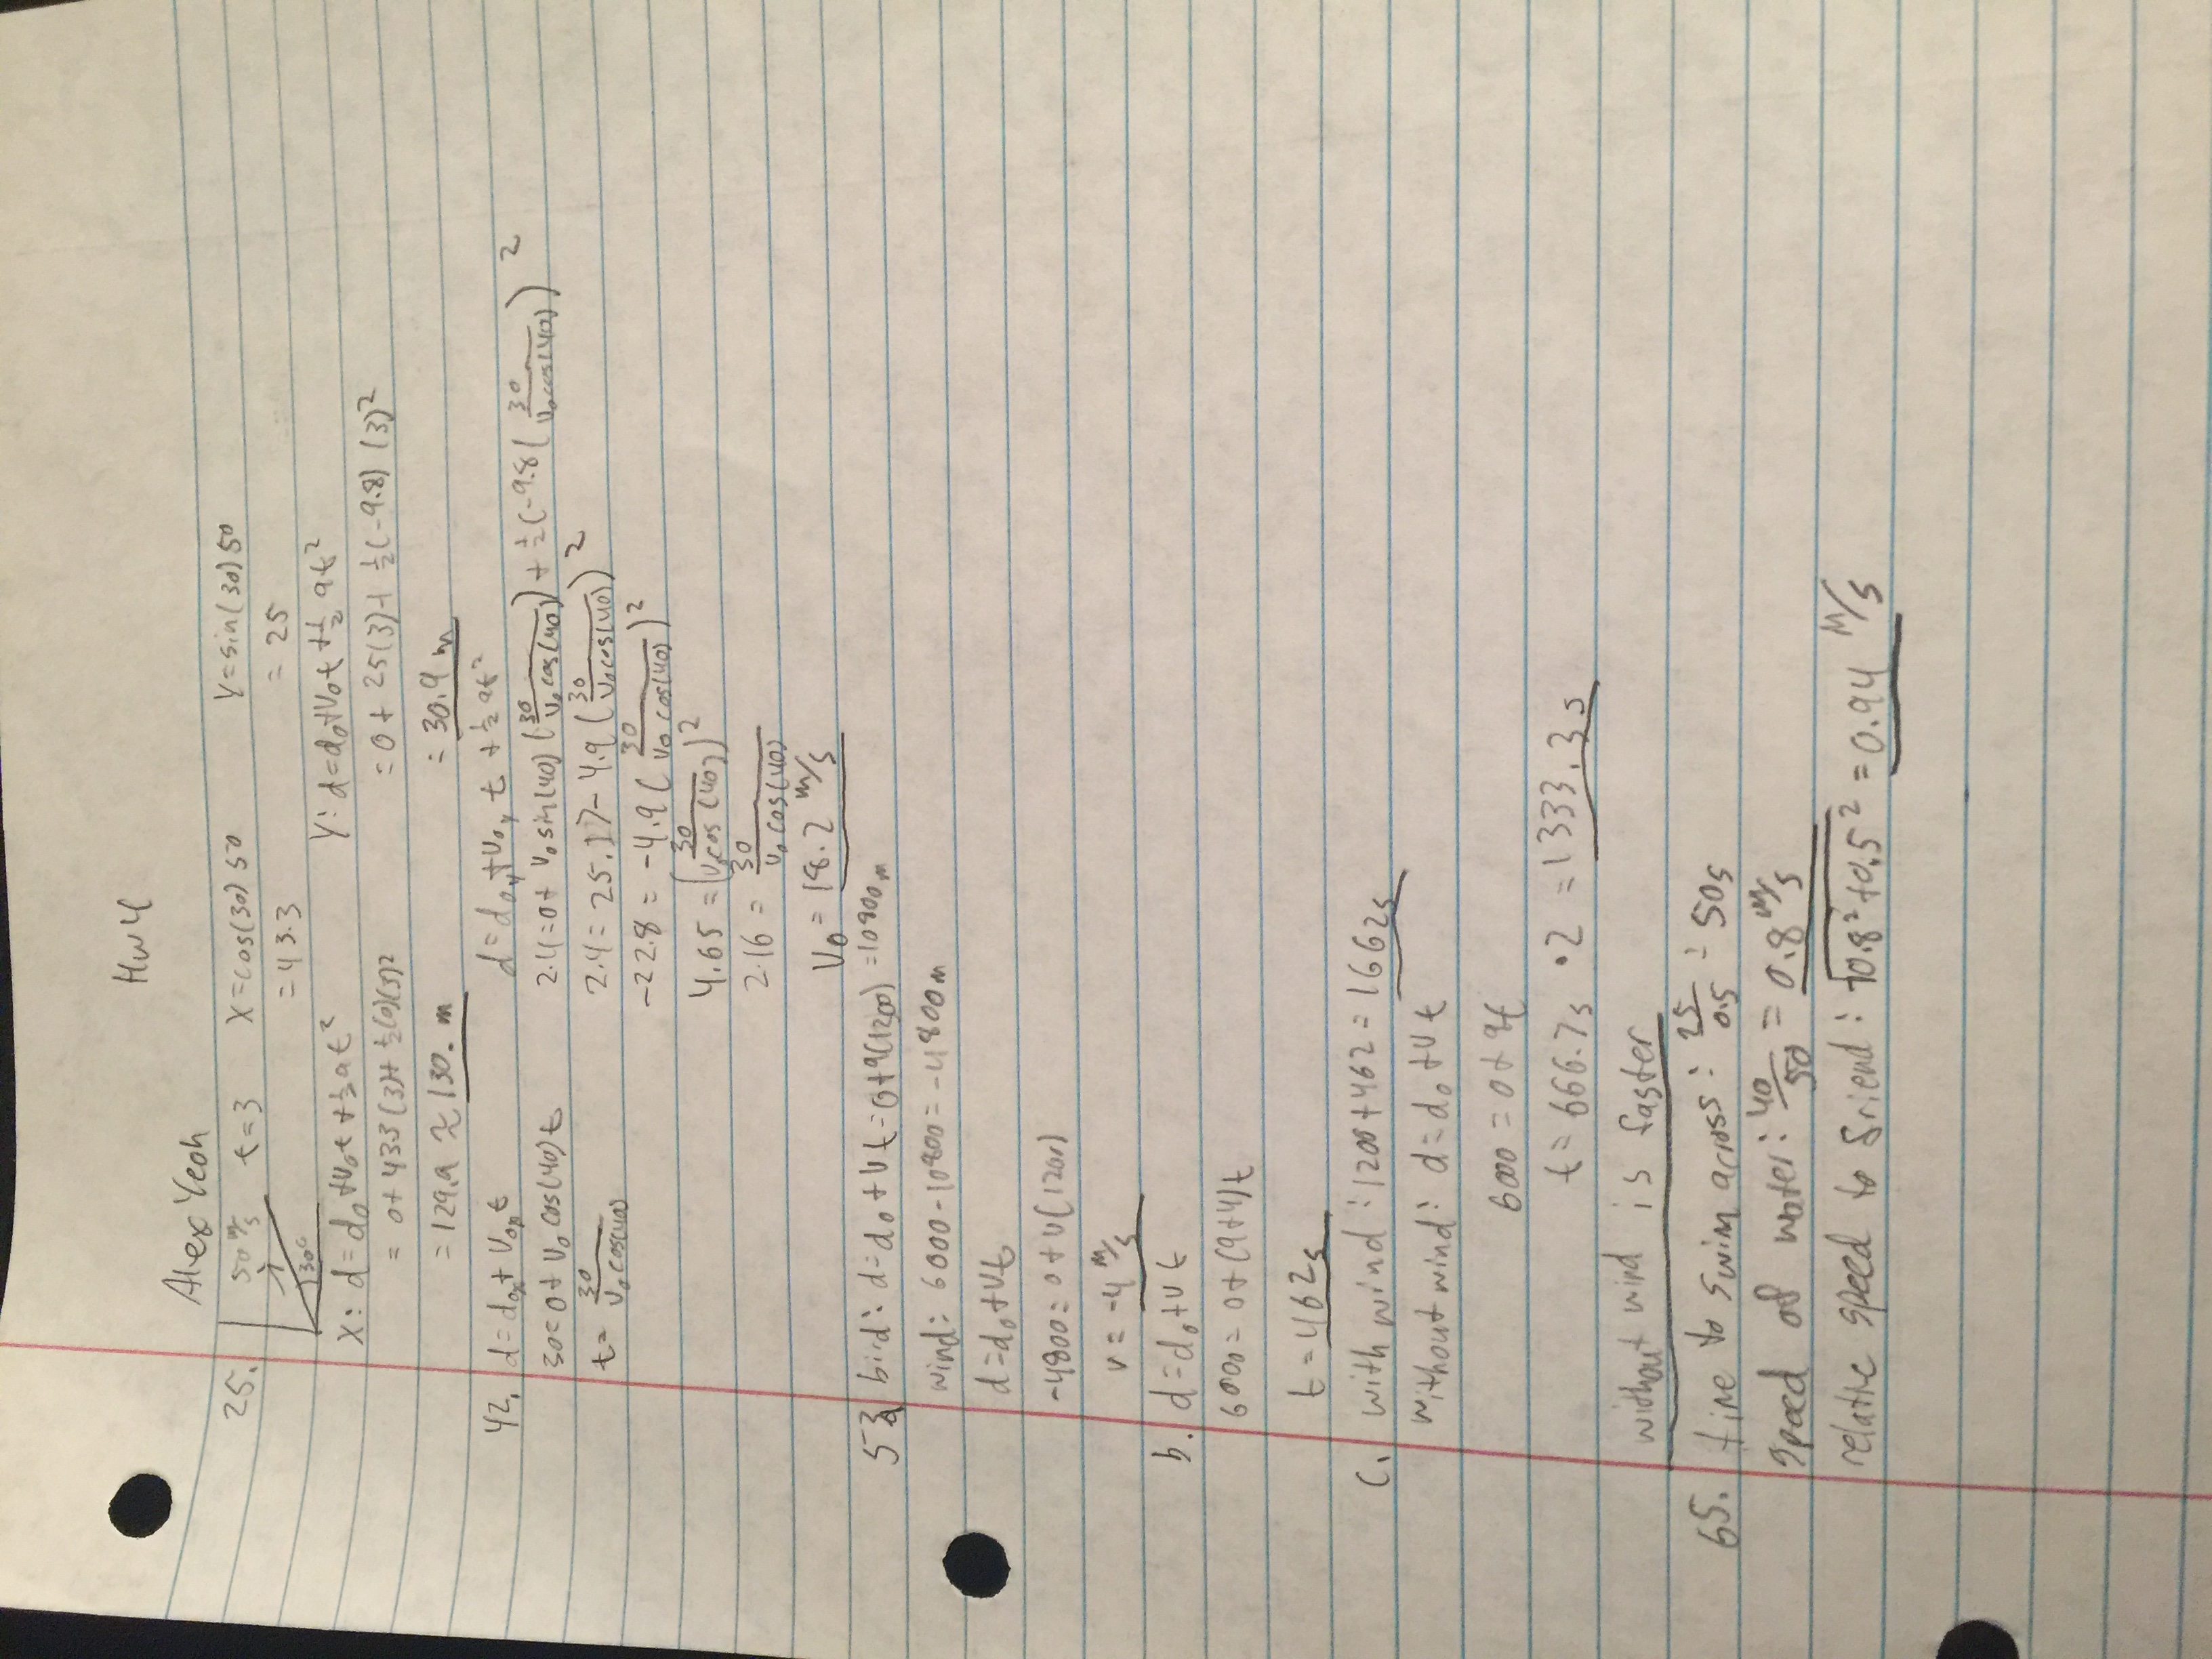 HW 4
Alex Yeoh
25. 50 m/s t=3 X=cos(30) 50 Y=sin(30) 50
30° =43.3 = 25
X: d=d₀+v₀t+½at² Y: d=d₀+v₀t+½at²
= 0+43.3(3)+½(0)(3)² = 0+25(3)+½(-9.8)(3)²
=129.9 ≈ 130. m = 30.9 m
42. d=d₀ₓ+V₀ₓt d=d₀ᵧ+V₀ᵧt+½at²
30=0+V₀cos(40)t 2.4=0+V₀sin(40)(30/V₀cos(40))+½(-9.8(30/V₀cos(40))²
t=30/V₀cos(40) 2.4=25.17-4.9(30/V₀cos(40))²
-22.8=-4.9(30/V₀cos(40))²
4.65=(30/V₀cos(40))²
2.16=30/V₀cos(40)
V₀=18.2 m/s
53. bird: d=d₀+vt=0+9(1200)=10800m
wind: 6000-10800=-4800m
d=d₀+vt
-4800=0+v(1200)
v=-4 m/s
b. d=d₀+vt
6000=0+(9+4)t
t=462s
c. with wind: 1200+462=1662s
without wind: d=d₀+vt
6000=0+9t
t=666.7s •2=1333.3s
without wind is faster
65. time to swim across: 25/0.5=50s
speed of water: 40/50=0.8 m/s
relative speed to friend: √0.8²+0.5²=0.94 m/s